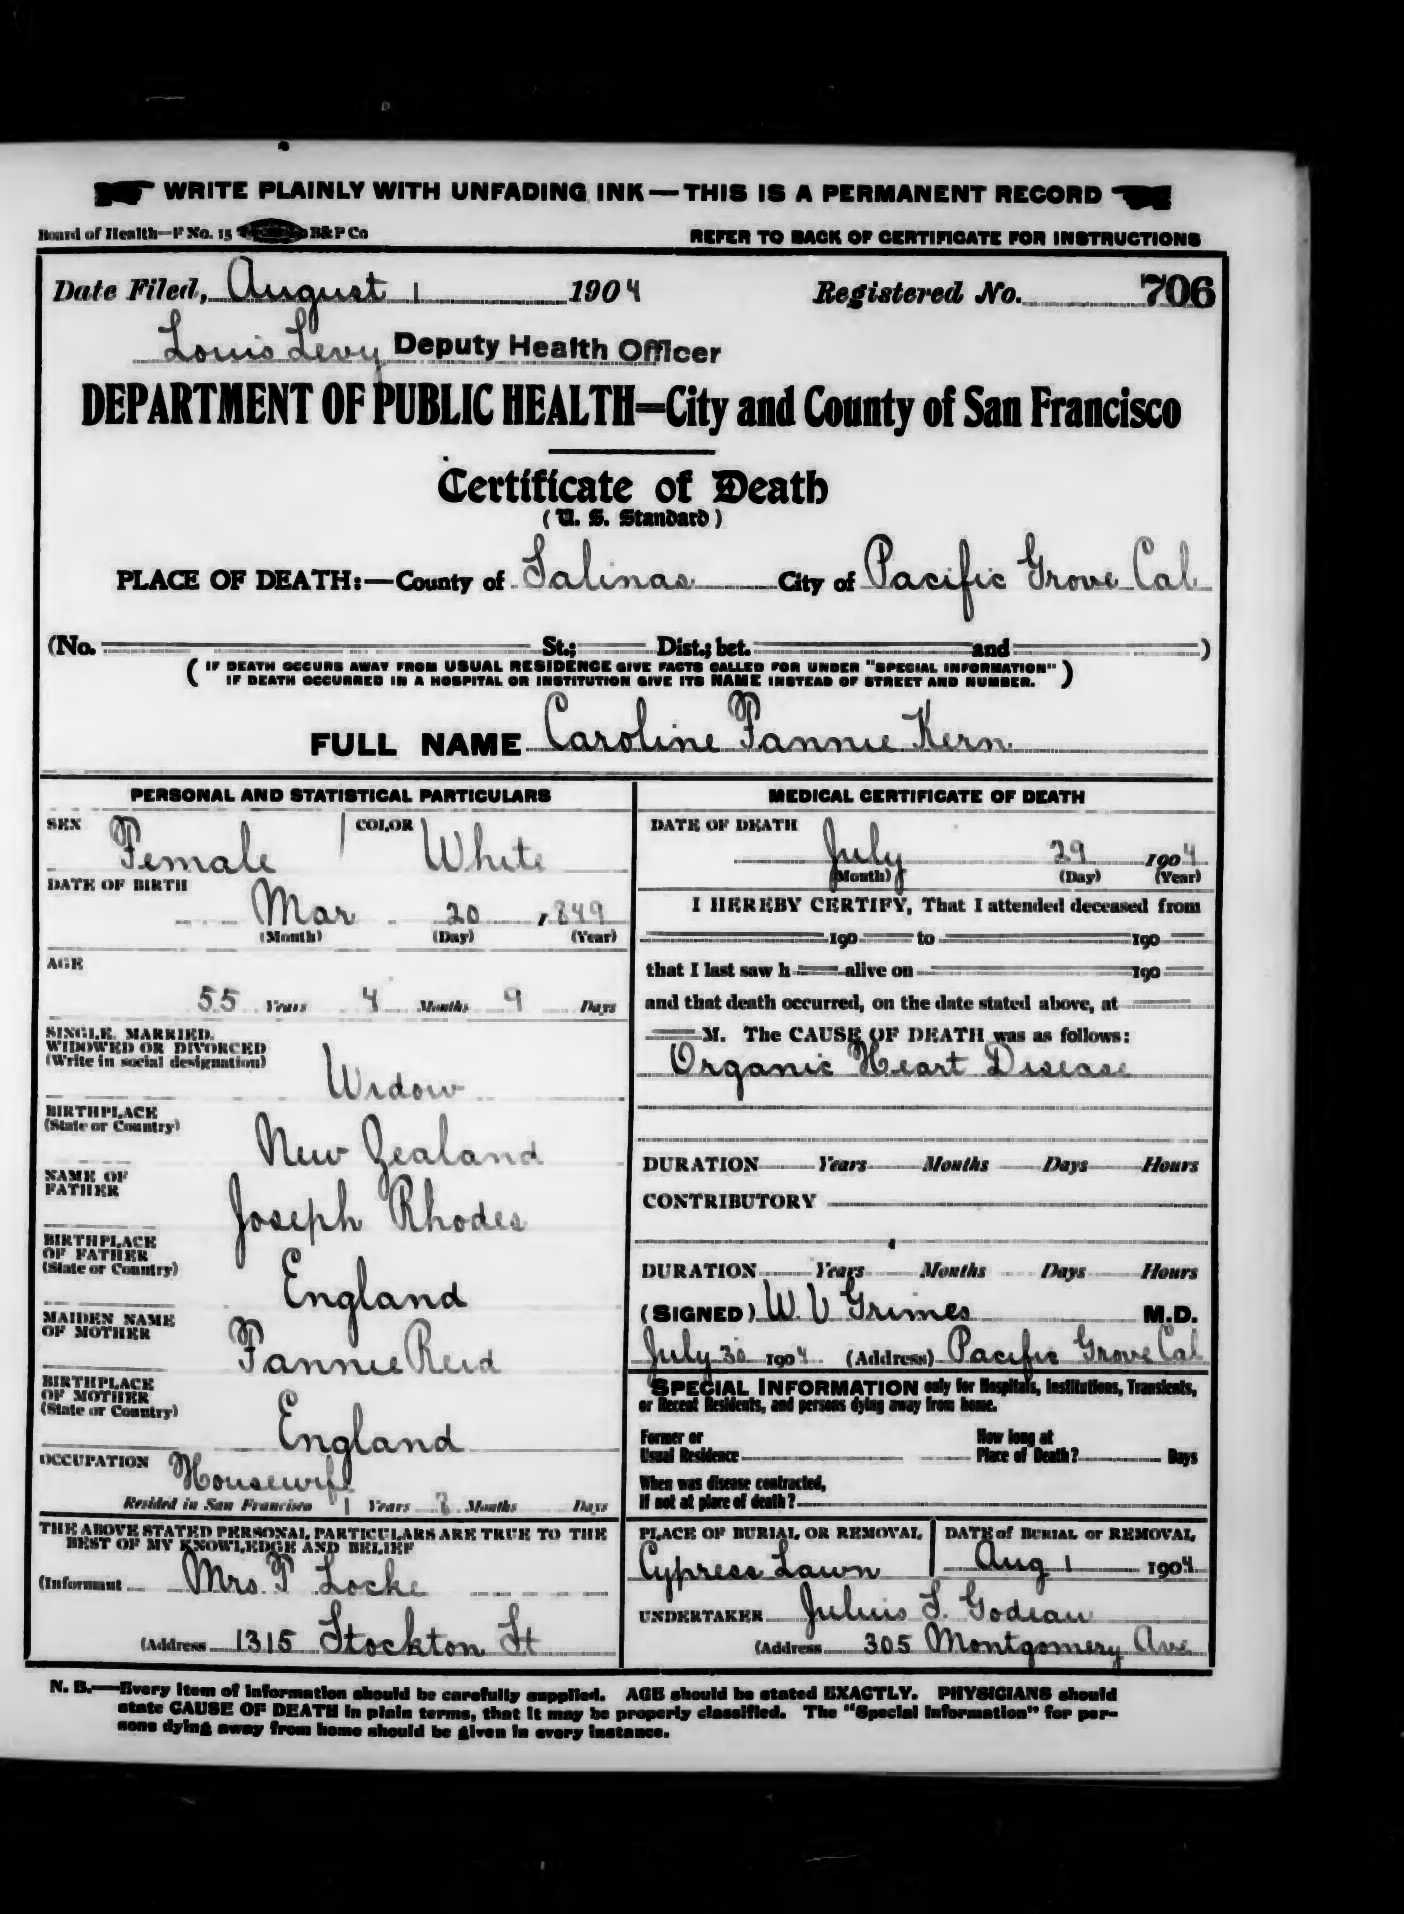 WRITE PLAINLY WITH UNFADING INK—THIS IS A PERMANENT RECORD
Board of Health—F No. 15 B&P Co REFER TO BACK OF CERTIFICATE FOR INSTRUCTIONS
Date Filed, August 1 1904 Registered No. 706
Louis Levy Deputy Health Officer
DEPARTMENT OF PUBLIC HEALTH—City and County of San Francisco
Certificate of Death
(U. S. Standard)
PLACE OF DEATH:—County of Salinas City of Pacific Grove Cal
(No. St.; Dist.; bet. and )
(IF DEATH OCCURS AWAY FROM USUAL RESIDENCE GIVE FACTS CALLED FOR UNDER "SPECIAL INFORMATION"
IF DEATH OCCURRED IN A HOSPITAL OR INSTITUTION GIVE ITS NAME INSTEAD OF STREET AND NUMBER.)
FULL NAME Caroline Fannie Kern
PERSONAL AND STATISTICAL PARTICULARS
SEX Female COLOR White
DATE OF BIRTH
Mar 20 , 849
(Month) (Day) (Year)
AGE
55 Years 4 Months 9 Days
SINGLE, MARRIED,
WIDOWED OR DIVORCED
(Write in social designation)
Widow
BIRTHPLACE
(State or Country)
New Zealand
NAME OF
FATHER
Joseph Rhodes
BIRTHPLACE
OF FATHER
(State or Country)
England
MAIDEN NAME
OF MOTHER
Fannie Reid
BIRTHPLACE
OF MOTHER
(State or Country)
England
OCCUPATION Housewife
Resided in San Francisco 1 Years 8 Months Days
THE ABOVE STATED PERSONAL PARTICULARS ARE TRUE TO THE
BEST OF MY KNOWLEDGE AND BELIEF
(Informant Mrs. F Locke
(Address 1315 Stockton St
MEDICAL CERTIFICATE OF DEATH
DATE OF DEATH
July 29 1904
(Month) (Day) (Year)
I HEREBY CERTIFY, That I attended deceased from
190 to 190
that I last saw h alive on 190
and that death occurred, on the date stated above, at
M. The CAUSE OF DEATH was as follows:
Organic Heart Disease
DURATION Years Months Days Hours
CONTRIBUTORY
DURATION Years Months Days Hours
(SIGNED) W. V Grimes M.D.
July 30 1904 (Address) Pacific Grove Cal
SPECIAL INFORMATION only for Hospitals, Institutions, Transients,
or Recent Residents, and persons dying away from home.
Former or
Usual Residence
How long at
Place of Death? Days
When was disease contracted,
If not at place of death?
PLACE OF BURIAL OR REMOVAL DATE of BURIAL or REMOVAL
Cypress Lawn Aug 1 1904
UNDERTAKER Julius S. Godeau
(Address 305 Montgomery Ave
N. B.—Every item of information should be carefully supplied. AGE should be stated EXACTLY. PHYSICIANS should
state CAUSE OF DEATH in plain terms, that it may be properly classified. The "Special Information" for per-
sons dying away from home should be given in every instance.